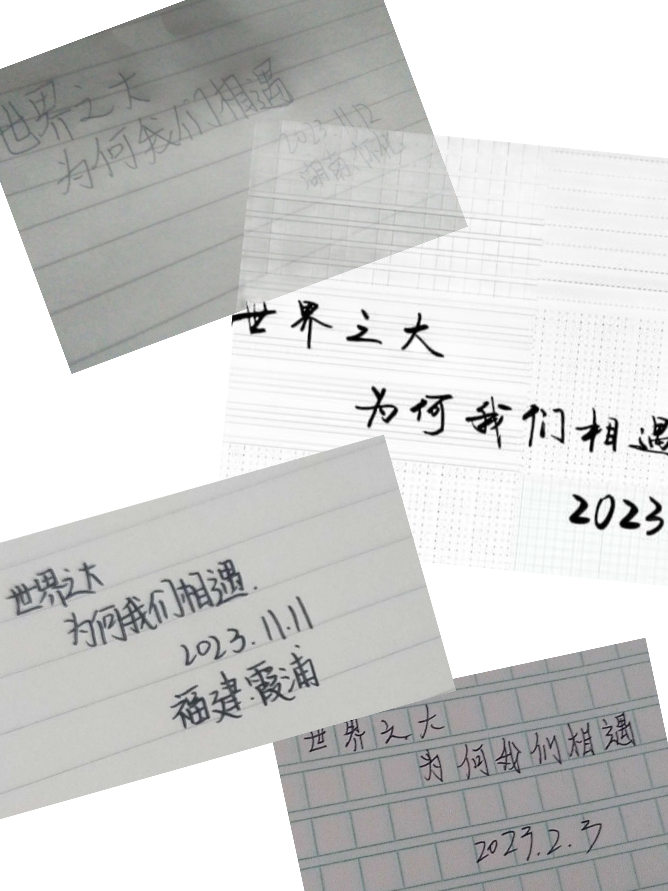 世界之大
为何我们相遇
2023.11.12
湖南.怀化.
世界之大
为何我们相遇
2023
世界之大
为何我们相遇.
2023.11.11
福建.霞浦
世界之大
为何我们相遇
2023.2.3